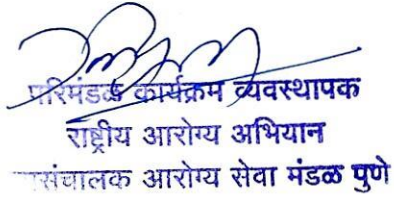 परिमंडळ कार्यक्रम व्यवस्थापक
राष्ट्रीय आरोग्य अभियान
आरोग्य सेवा मंडळ पुणे